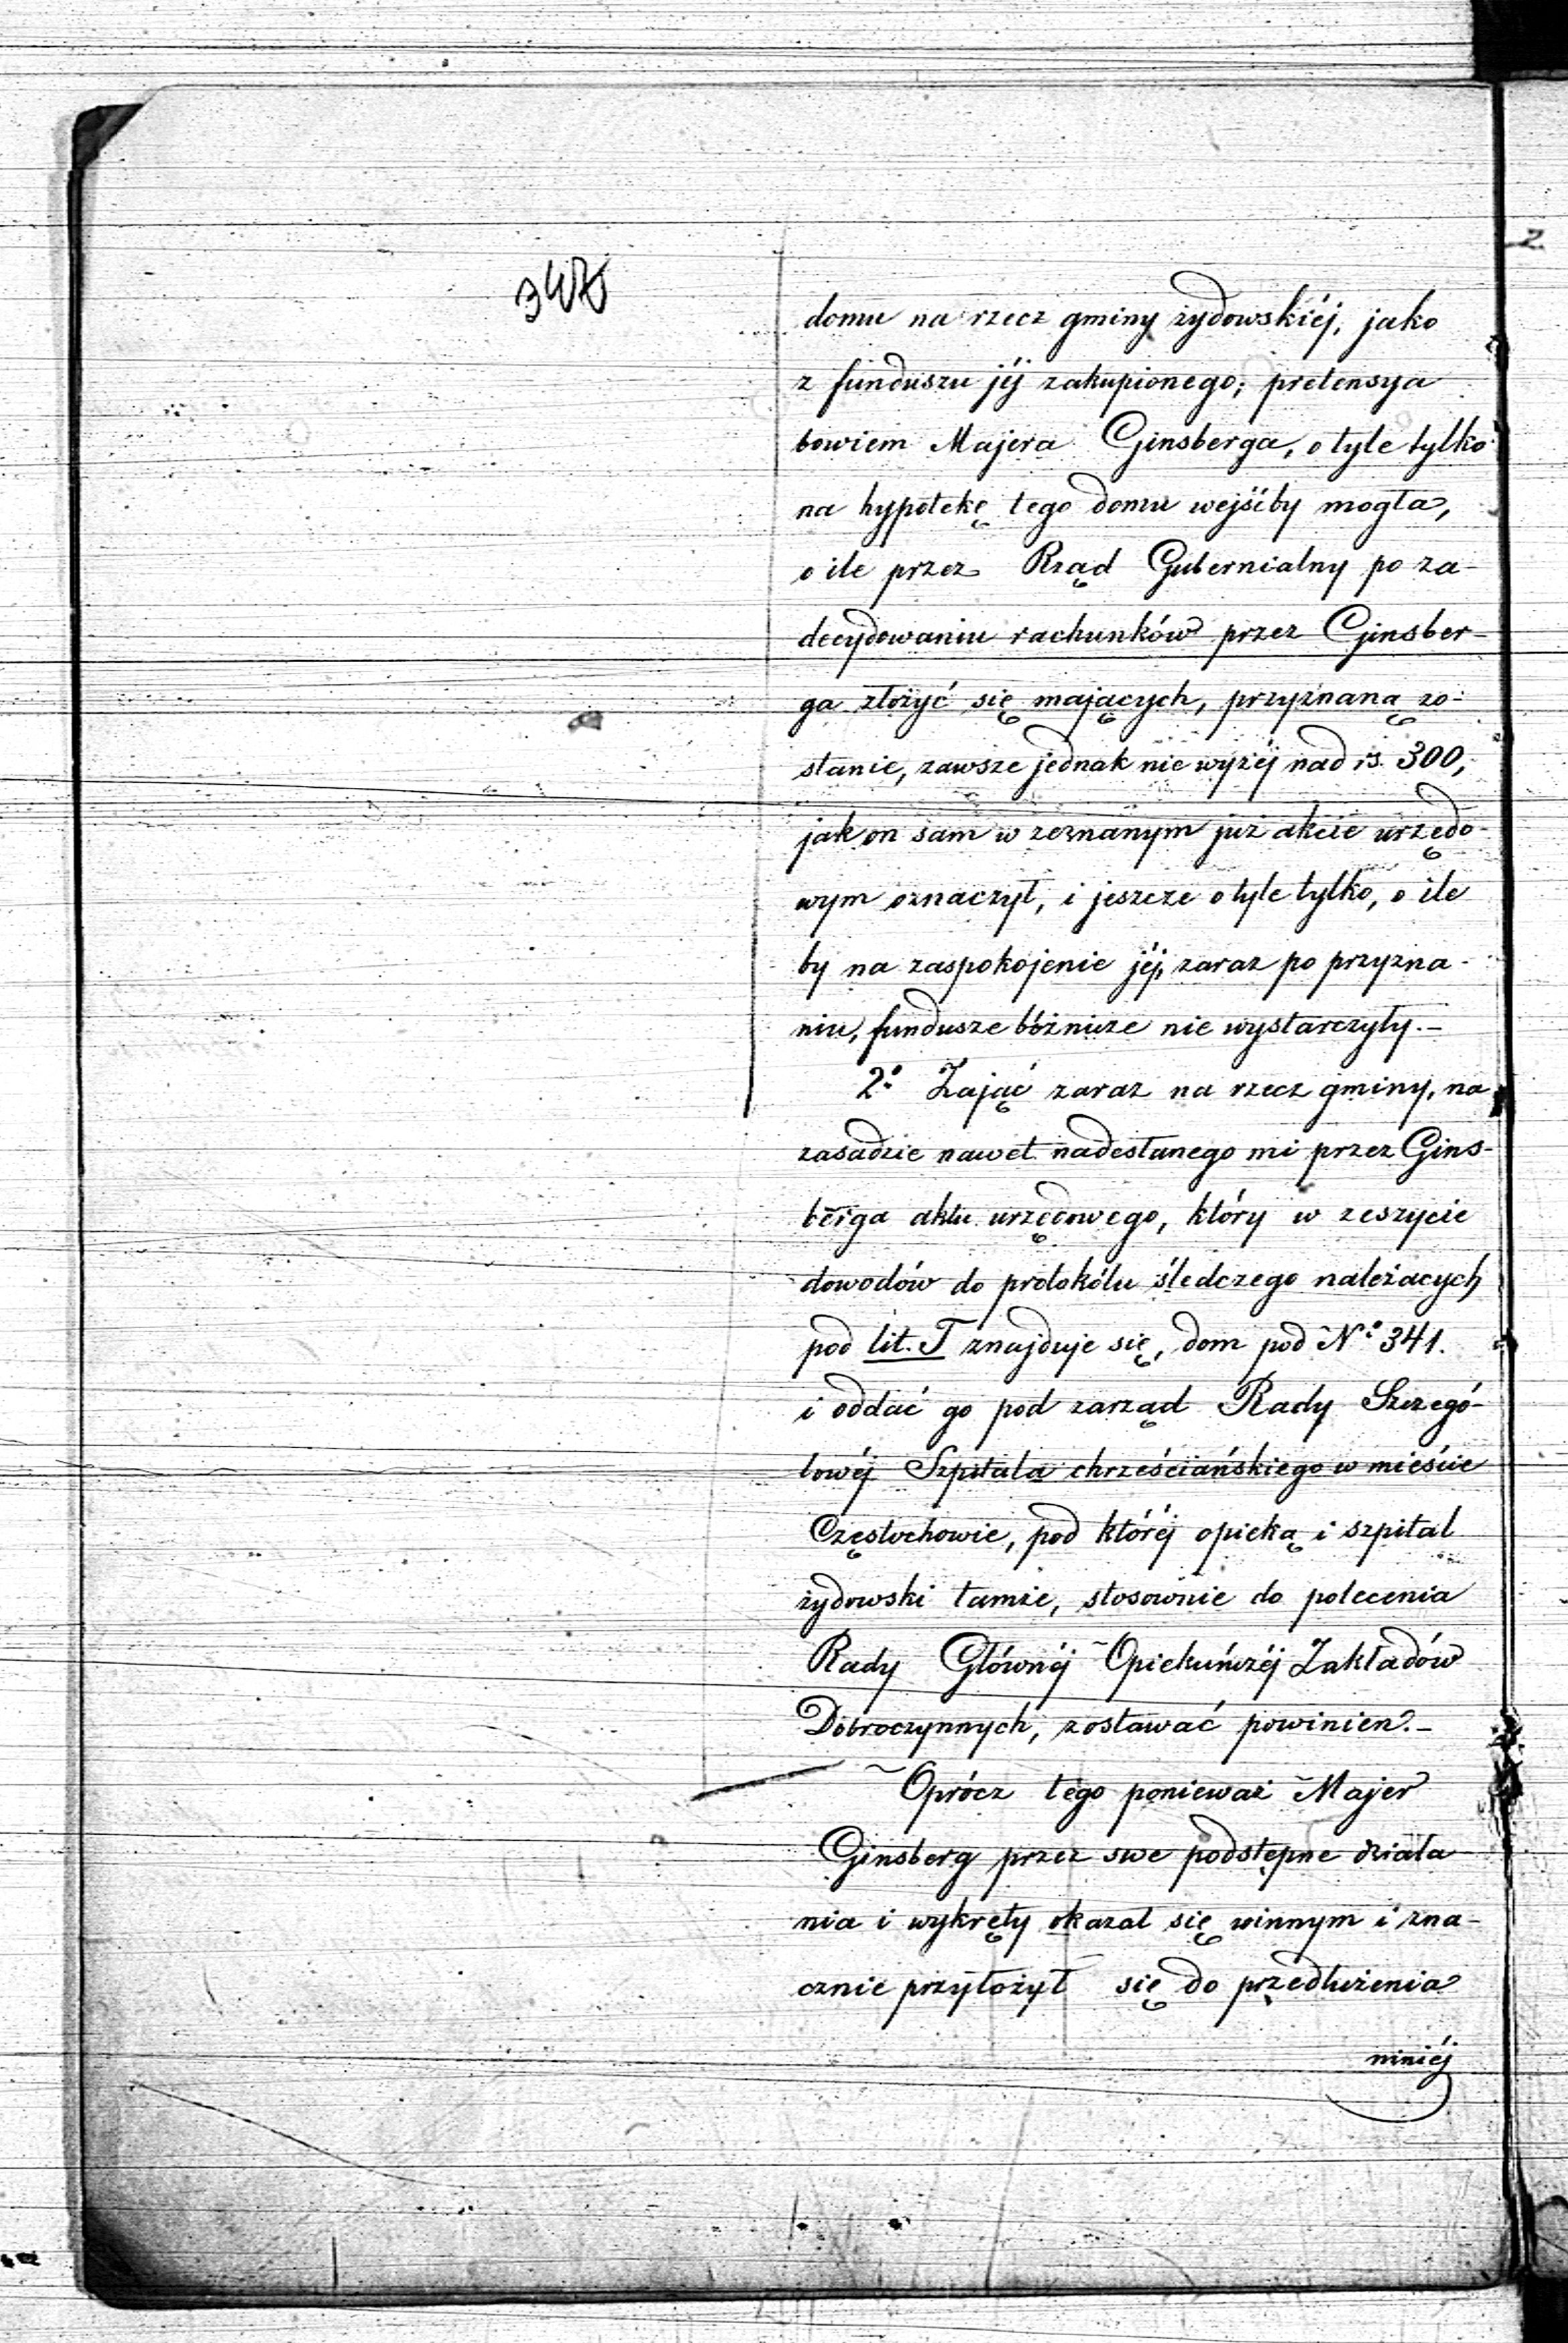 domu na rzecz gminy żydowskiéj, jako
z funduszu jéj zakupionego; pretensya
bowiem Majera Ginsberga, o tyle tylko
na hypotekę tego domu wejśćby mogła,
o ile przez Rząd Gubernialny po za-
decydowaniu rachunków przez Ginsber-
ga złożyć się mających, przyznaną zo-
stanie, zawsze jednak nie wyżéj nad rs. 300,
jak on sam w zeznanym już akcie urzędo-
wym oznaczył, i jeszcze o tyle tylko, o ile
by na zaspokojenie jéj, zaraz po przyzna-
niu, fundusze bóżnicze nie wystarczyły.-
2º Zająć zaraz na rzecz gminy, na
zasadzie nawet nadesłanego mi przez Gins-
berga aktu urzędowego, który w zeszycie
dowodów do protokółu śledczego należacych
pod lit. T znajduje się, dom pod Nº 341.
i oddać go pod zarząd Rady Szczegó-
lowéj Szpitala chrześciańskiego w mieście
Częstochowie, pod któréj opieką i szpital
żydowski tamże, stosownie do polecenia
Rady Głównéj Opiekuńczéj Zakładów
Dobroczynnych, zostawać powinien.-
Oprócz tego ponieważ Majer
Ginsberg przez swe podstępne działa-
nia i wykręty okazał się winnym i zna-
cznie przyłożył się do przedłużenia
niniéj